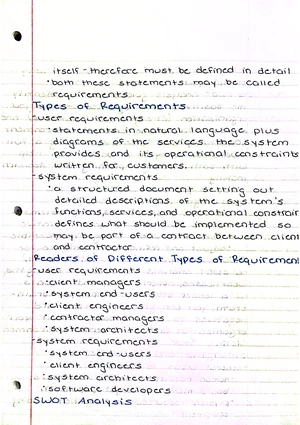 itself - therefore must be defined in detail
• both these statements may be called
requirements
Types of Requirements
- user requirements
• statements in natural language plus
diagrams of the services the system
provides and its operational constraints
written for customers.
- system requirements
• a structured document setting out
detailed descriptions of the system's
functions, services, and operational constrain
defines what should be implemented so
may be part of a contract between client
and contractor
Readers of Different Types of Requiremen
- user requirements
• client managers
• system end-users
• client engineers
• contractor managers
• system architects
- system requirements
• system end-users
• client engineers
• system architects
• software developers
SWOT Analysis